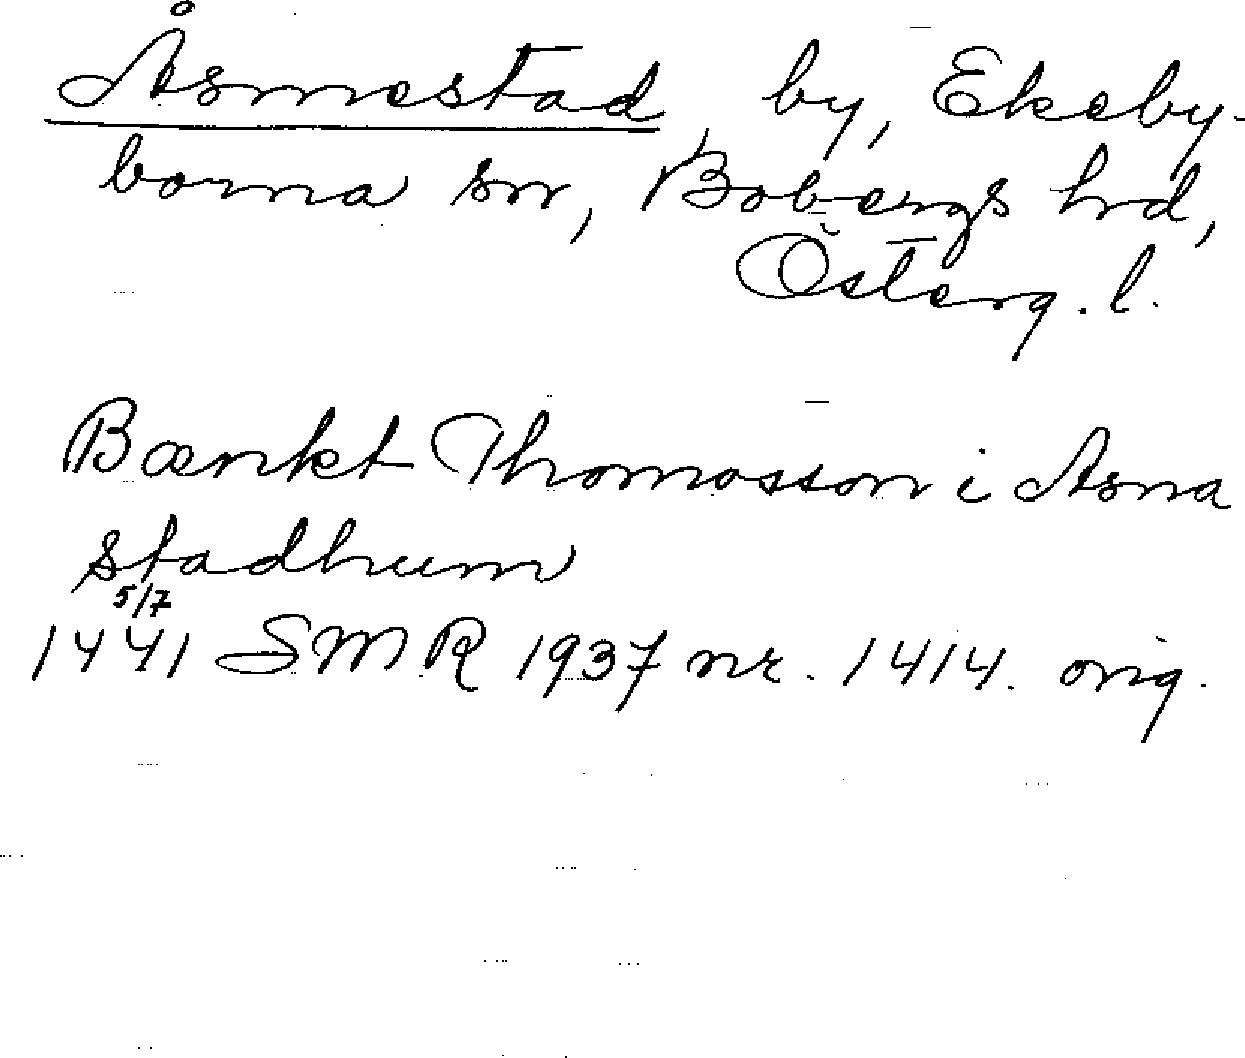 Åsmestad by, Ekeby-
borna sn, Bobergs hrd,
Österg. l.
Bænkt Thomosson i Asna
stadhum
5/7
1441 SMR 1937 nr. 1414. orig.